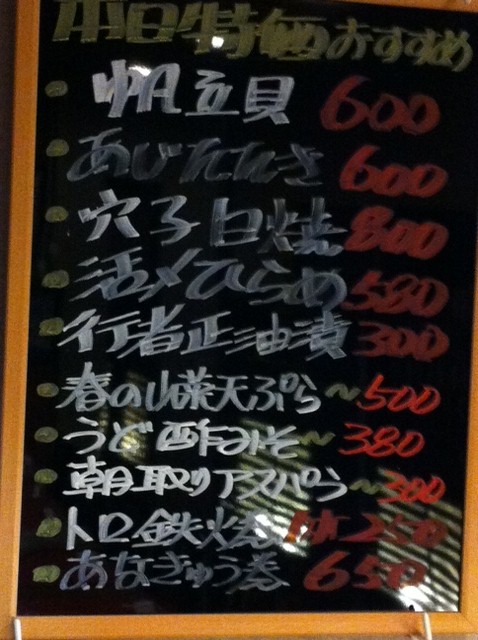 本日特価おすすめ
帆立貝 600
あじたたき 600
穴子白焼 800
活〆ひらめ 580
行者正油漬 300
春の山菜天ぷら〜500
うど酢みそ〜380
朝取りアスパら〜300
トロ鉄火巻 250
あなきゅう巻 650